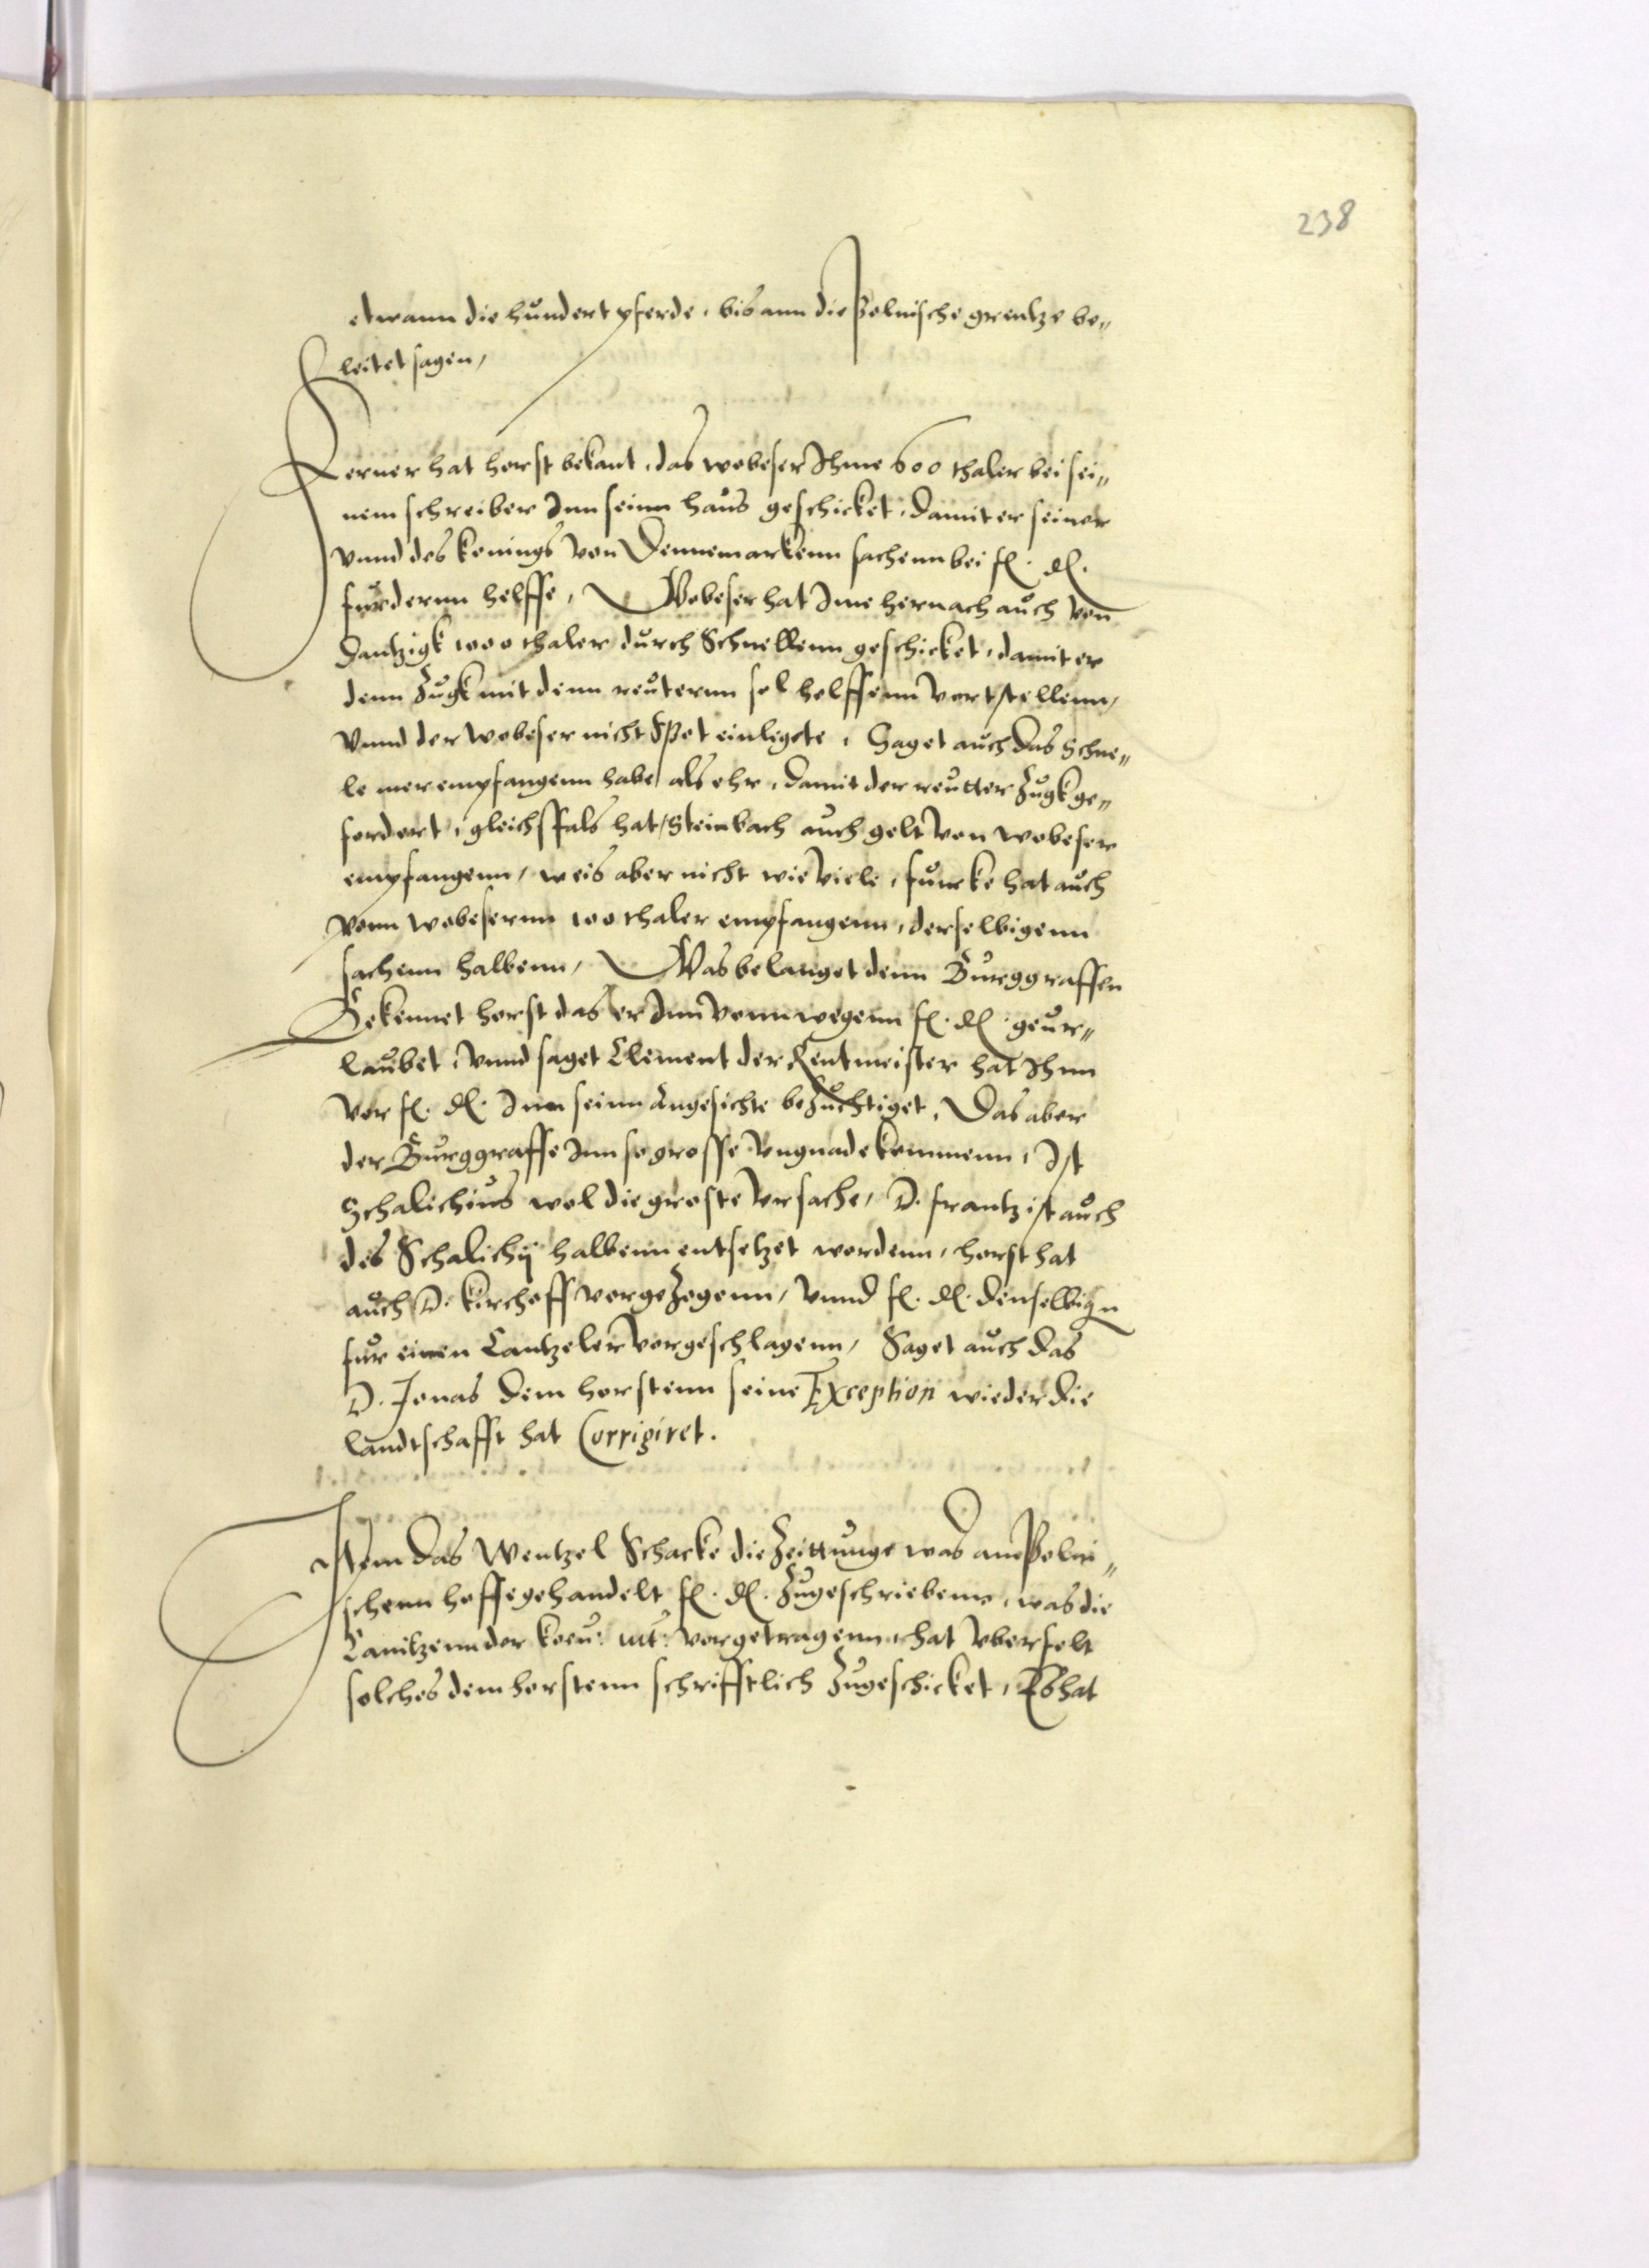 238
etwann die hundert pferde, bis ann die Polnische grentze be„
leitet sagen,
Ferner hat horst bekant, das wobeser Ihme 600 thaler bei sei„
nem schreiber Inn seinn haus geschicket, damit er seiner
vnnd des konings von Dennemarkenn sachenn bei fl. dl.
furdernn helffe, Wobeser hat Ime hernach auch von
Dantzigk 1000 thaler durch Schnellenn geschicket, damit er
denn Zugk mit denn reuternn sol helffenn vortstellenn,
Vnnd der wobeser nicht Spot einlegete, Saget auch das Schne„
le mer empfangenn habe als ehr, damit der reutter Zugk ge„
fordert, gleichsfals hat Steinbach auch gelt von wobeser
empfangenn, weis aber nicht wie viele, funcke hat auch
vonn wobesernn 100 thaler empfangenn, derselbigenn
sachenn halbenn, Was belanget denn Burggraffen
Bekennet horst das er Inn vonnwegenn fl. dl. geur„
laubet, vnnd saget Clement der Rentmeister hat Ihnn
vor fl. dl. Inn seinn Angesichte bezuchtiget, Das aber
der Burggraffe Inn so grosse vngnade kommenn, Ist
Schalichius wol die groste vrsache, D. frantz ist auch
des Schalichij halbenn entsetzet wordenn, horst hat
auch D. Kirchoff vorgezogenn, vnnd fl. dl. denselbign
fur einen Cantzeler vorgeschlagenn, Saget auch das
D. Jonas dem horstenn seine Exception wieder die
landtschafft hat Corrigiret.
Item das Wentzel Schacke die Zeittunge was ann Polni„
schenn hoffe gehandelt fl. dl. Zugeschriebenn, was die
Canitzenn der kon: mt: vorgetragenn, hat vberfelt
solches dem horstenn schrifftlich Zugeschicket, Es hat